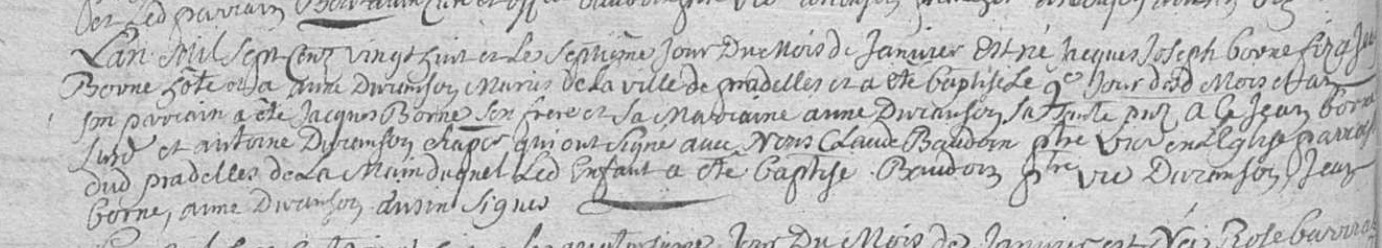 et led parrain
Lan Mil Sept Cens vingt huit et le septieme Jour Du Mois de Janvier est né Jacques Joseph borne fils a
Borne hôte et a anne Duranson Maries de la ville de pradelles et a été baptise Le 9e Jour dud Mois et an
son parrain a été Jacques Borne son frere et sa Marraine anne Duranson sa tante puz a Jean borne
et antoine Duranson chapr qui ont signé avec Nous Claude Baudoin ptre vic en l'Eglise parrois
dud pradelles de la Main duquel led Enfant a été baptisé . Baudoin ptre vic Duranson, Jean
borne, anne Duranson ainsin signes
Jour Du Mois de Janvier est Née Rose